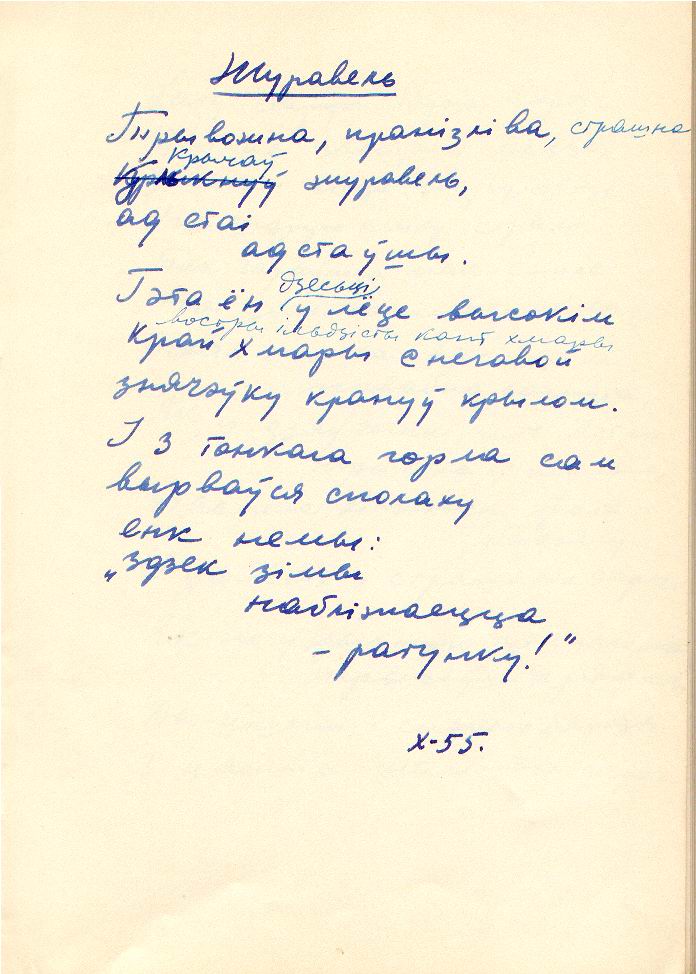 Журавель
Трывожна, пранізліва, страшна
крычаў
журавель,
ад стаі
адстаўшы.
дзесьці
Гэта ён у лёце высокім
востры ільдзісты кант хмары
край хмары снегавой
знячэўку крануў крылом.
І з тонкага горла сам
вырваўся спалаху
енк немы:
„Здзек зімы
набліжаецца
– ратунку!"
X-55.